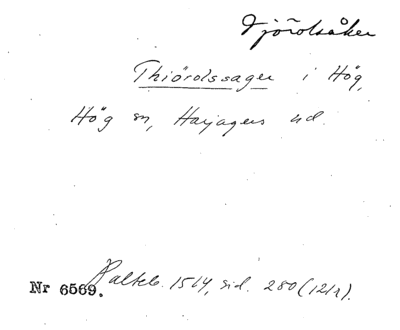 Tjörolsåker
Thiörolssager i Hög,
Hög sn, Harjagers hd.
Nr 6569. Palteb. 1514, sid. 280 (121r).